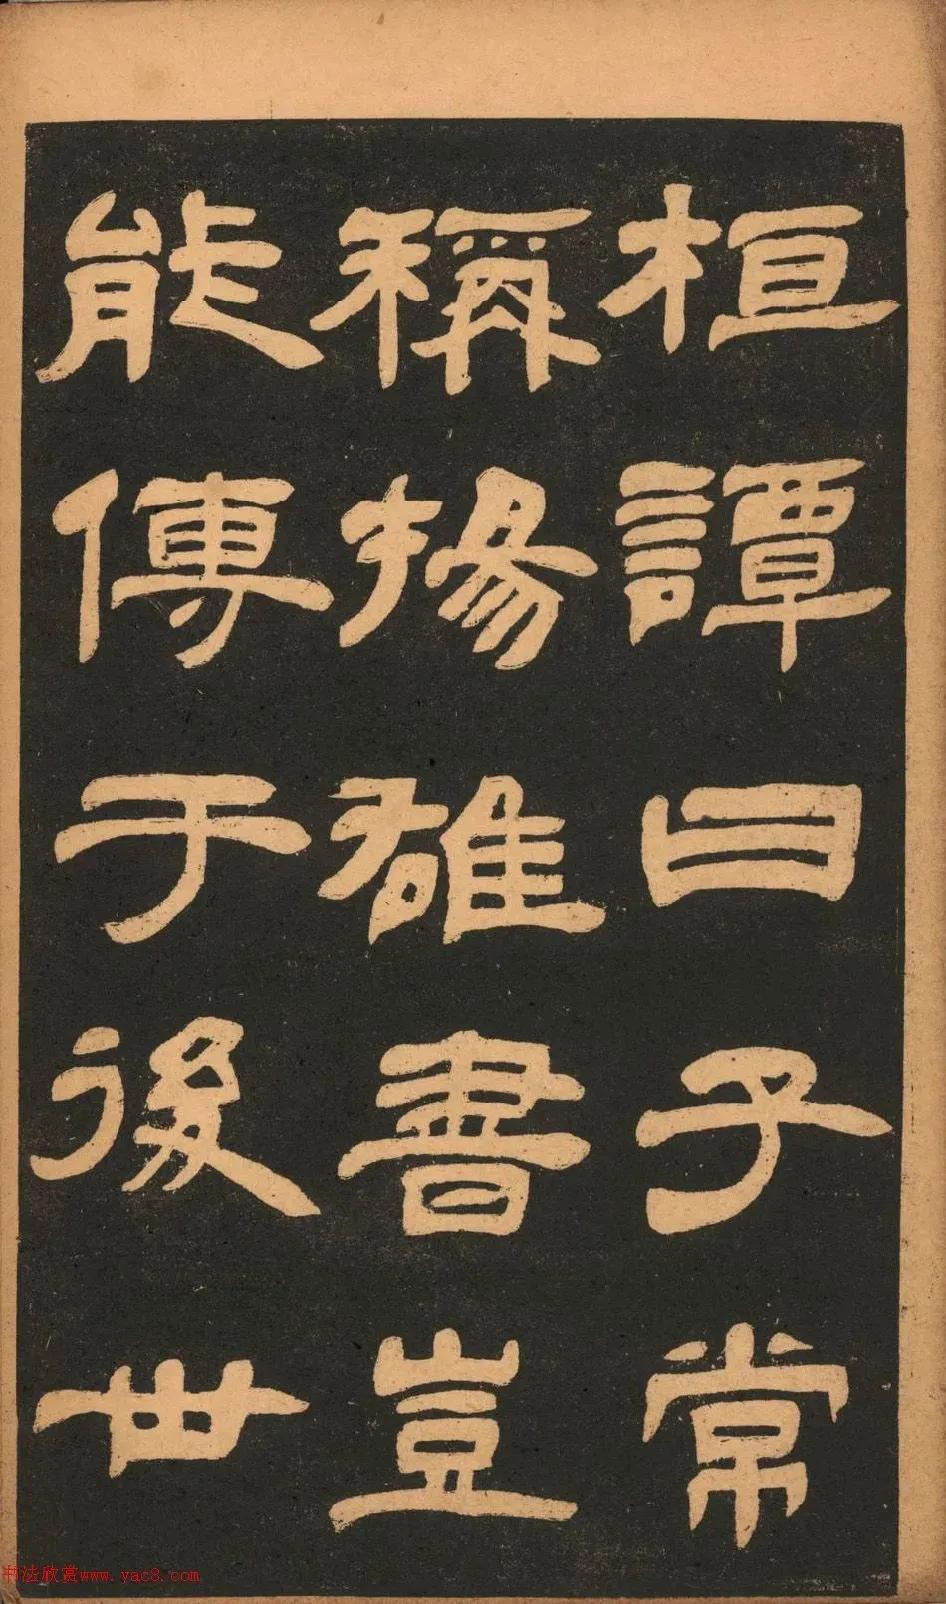 桓譚曰子常
稱揚雄書豈
能傳于後世
书法欣赏www.yac8.com